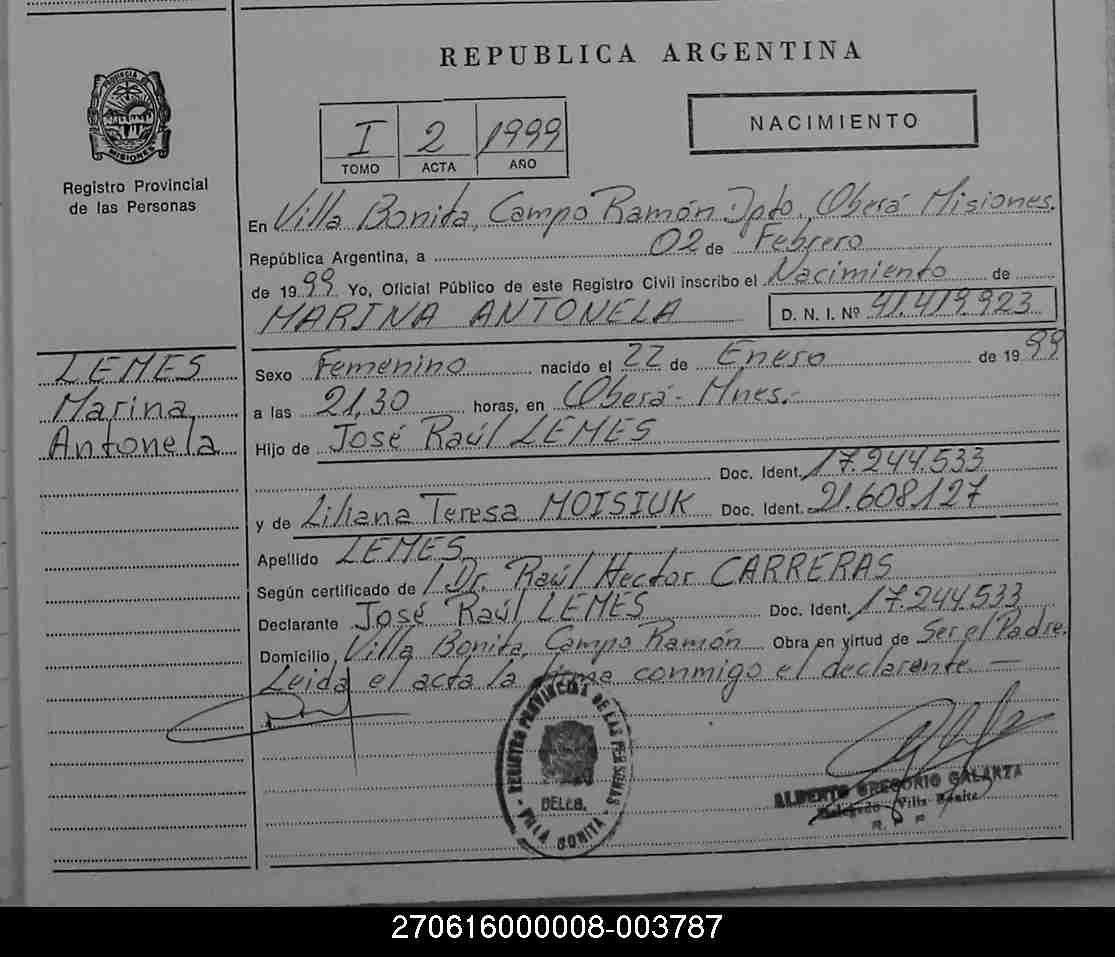 REPUBLICA ARGENTINA
PROVINCIA DE
MISIONES
Registro Provincial
de las Personas
I 2 1999
TOMO ACTA AÑO
NACIMIENTO
En Villa Bonita, Campo Ramón Dpto. Oberá Misiones.
República Argentina, a 02 de Febrero
de 1999 Yo, Oficial Público de este Registro Civil inscribo el Nacimiento de
MARINA ANTONELA D. N. I. Nº 41.419.923
LEMES
Marina
Antonela
Sexo Femenino nacido el 22 de Enero de 1999
a las 21,30 horas, en Oberá - Mnes.-
Hijo de José Raúl LEMES
Doc. Ident. 17.244.533
y de Liliana Teresa MOISIUK Doc. Ident. 21.608.127
Apellido LEMES
Según certificado de Dr. Raúl Hector CARRERAS
Declarante José Raúl LEMES Doc. Ident. 17.244.533
Domicilio Villa Bonita, Campo Ramón Obra en virtud de Ser el Padre.
Leida el acta la firma conmigo el declarante. —
REGISTRO PROVINCIAL DE LAS PERSONAS
VILLA BONITA
ALBERTO GREGORIO GALARZA
Delegado Villa Bonita
270616000008-003787